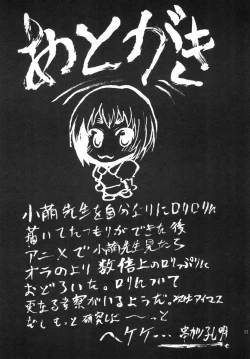 あとがき
小萌先生を自分なりにロリロリに
描いてたつもりができた後
アニメで小萌先生見たら
オラのより数倍上のロリっぷりに
おどろいた。ロリについて
更なる考察がいるようだ。
もっと研究に〜〜っと
へケケ…